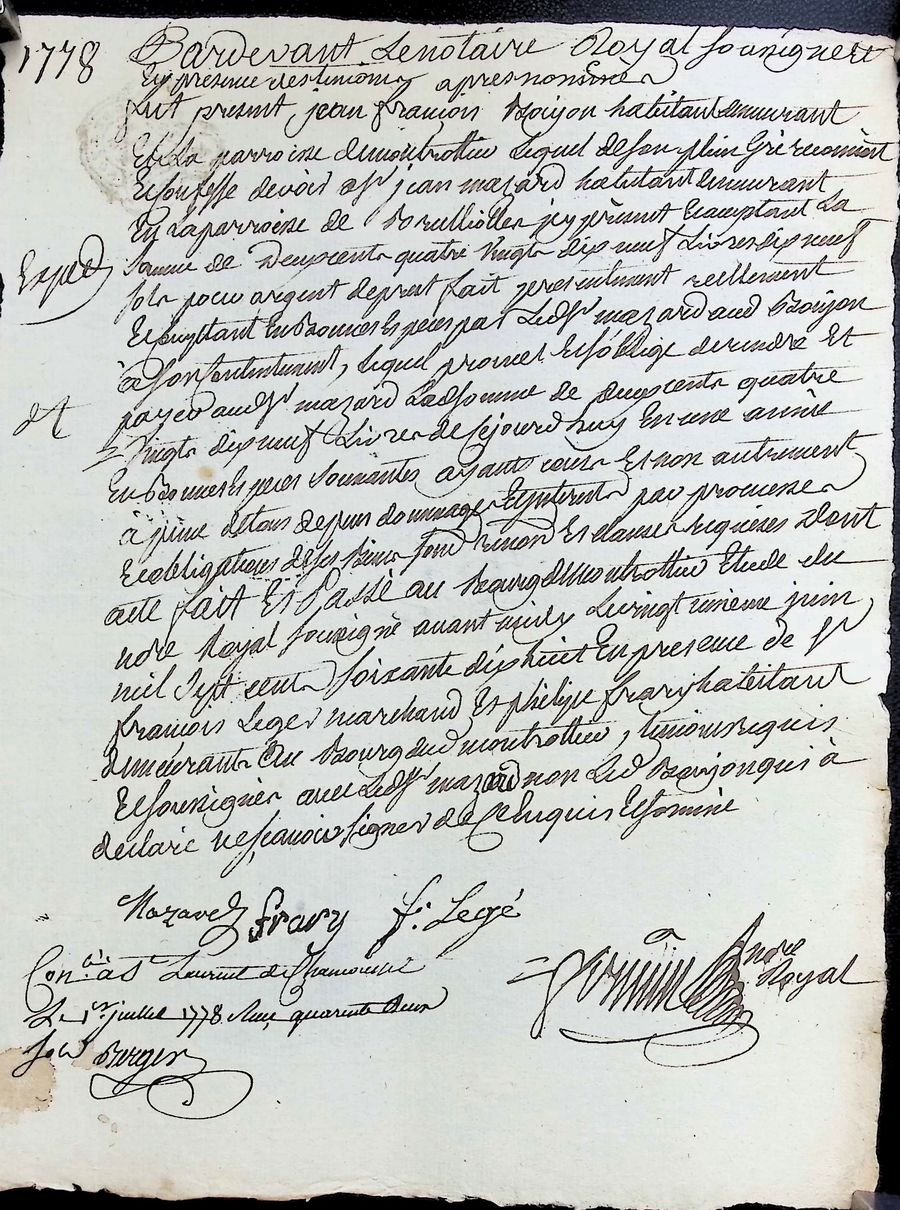 1778
Pardevant Le notaire Royal soussigné et
En presence des temoins apres nommés
fut present, jean françois Boijon habitant demeurant
En La parroisse de montrottier Lequel de son plein Gré reconnoit
Et confesse devoir a Sr jean mazard habitant demeurant
En La parroisse de Brulliolles icy présent Et acceptant La
somme de Deux cents quatre vingts dix neuf Livres dix neuf
Exped
sols pour argent de prest fait presentement réellement
Et comptant En Bonnes Especes par Ledt Sr mazard aud Boijon
à son contentement, Lequel promet Et s'oblige de rendre Et
payer audt Sr mazard Lad somme de deux cents quatre
dt
vingts dix neuf Livres de ce jourd'huy En une année
En Bonnes Especes sonnantes ayants cours Et non autrement
à peine de tous depens dommages Et interets par promesses
Et obligations de ses Biens Et clauses requises Dont
acte fait Et Passé au Bourg de montrottier Etude du
nore Royal soussigné avant midy Le vingt unieme juin
mil sept cents soixante dix huit En presence de Sr
françois Leger marchand Et philipe frary habitant
demeurants Au Bourg dud montrottier, temoins requis
Et soussignés avec Ledt Sr mazard non Led Boijon qui à
declaré ne sçavoir signer de ce Enquis Et sommé
Mazard frary f: Legé
Con.lé à St Laurent de Chamousset
nore Royal
Le 1er juillet 1778 Reçu quarente Deux
sols Berger